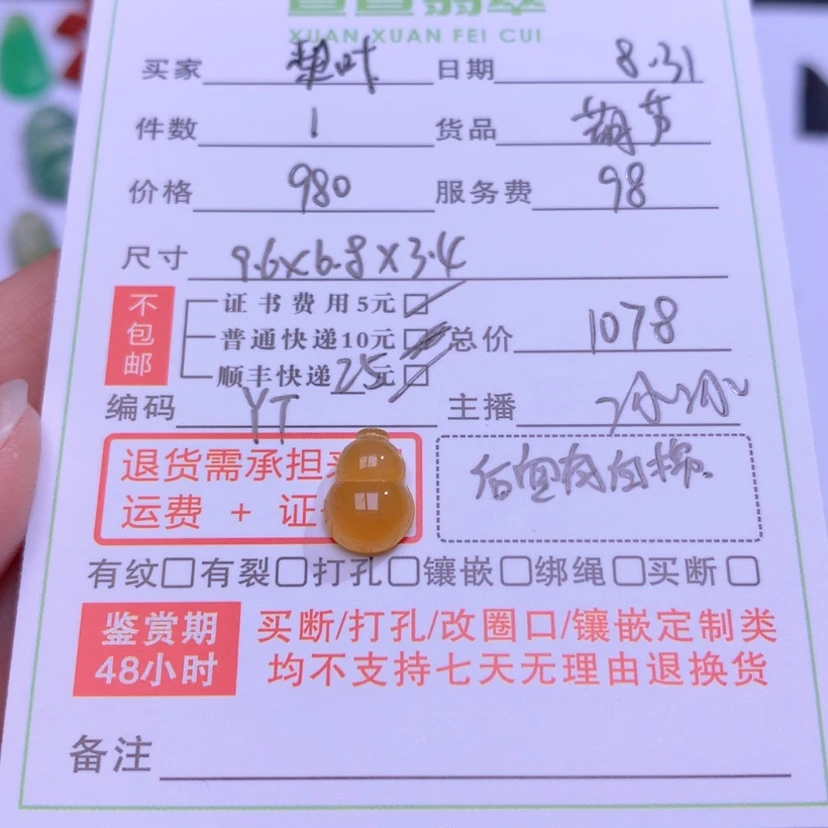 XUAN XUAN FEI CUI
买家 日期 8.31
件数 1 货品 葫芦
价格 980 服务费 98
尺寸 9.6×6.8×3.4
不包邮 证书费用5元□
普通快递10元□ 总价 1078
顺丰快递25元□
编码 YT 主播 冰冰
退货需承担
运费 + 证
有纹□有裂□打孔□镶嵌□绑绳□买断□
鉴赏期 买断/打孔/改圈口/镶嵌定制类
48小时 均不支持七天无理由退换货
备注